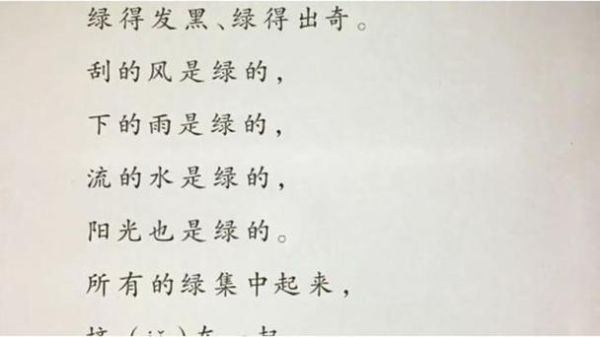 绿得发黑、绿得出奇。
刮的风是绿的，
下的雨是绿的，
流的水是绿的，
阳光也是绿的。
所有的绿集中起来，